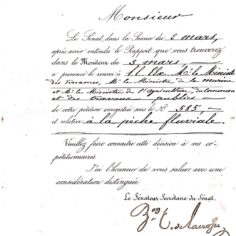 Monsieur
Le Sénat, dans la Séance du 2 mars,
après avoir entendu le Rapport que vous trouverez
dans le Moniteur du 3 mars
a prononcé le renvoi à M. le Ministre
des finances, M. le Ministre de la marine
et M. le Ministre de l'agriculture, du commerce
et des travaux publics
de votre pétition enregistrée sous le N° 585
et relative à la pêche fluviale.
Veuillez faire connaître cette décision à vos co-
pétitionnaires.
J'ai l'honneur de vous saluer avec une
considération distinguée.
Le Sénateur Secrétaire du Sénat,
Bon T. de